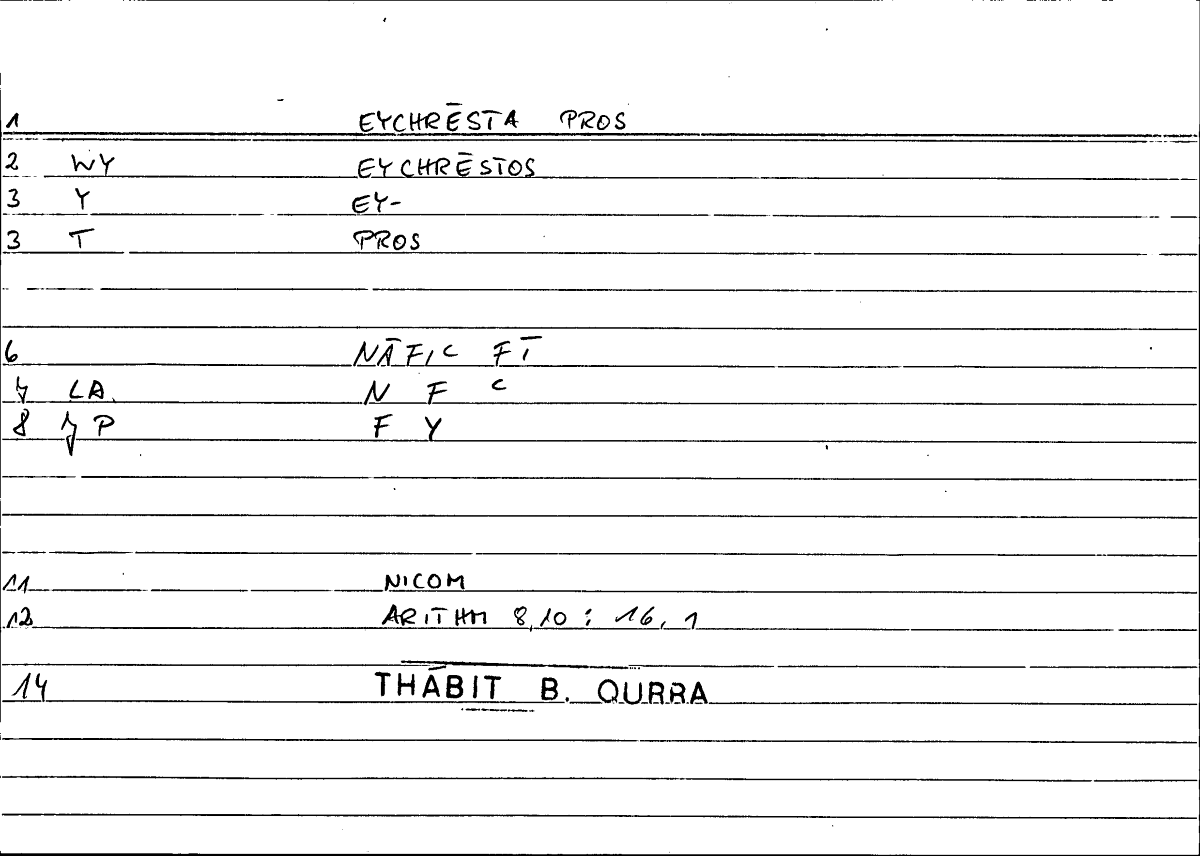 1 EYCHRĒSTA PROS
2 WY EYCHRĒSTOS
3 Y EY-
3 T PROS
6 NĀFIC FĪ
7 LA. N F C
8 P F Y
11 NICOM
12 ARITHM 8,10 : 16,1
14 THĀBIT B. QURRA